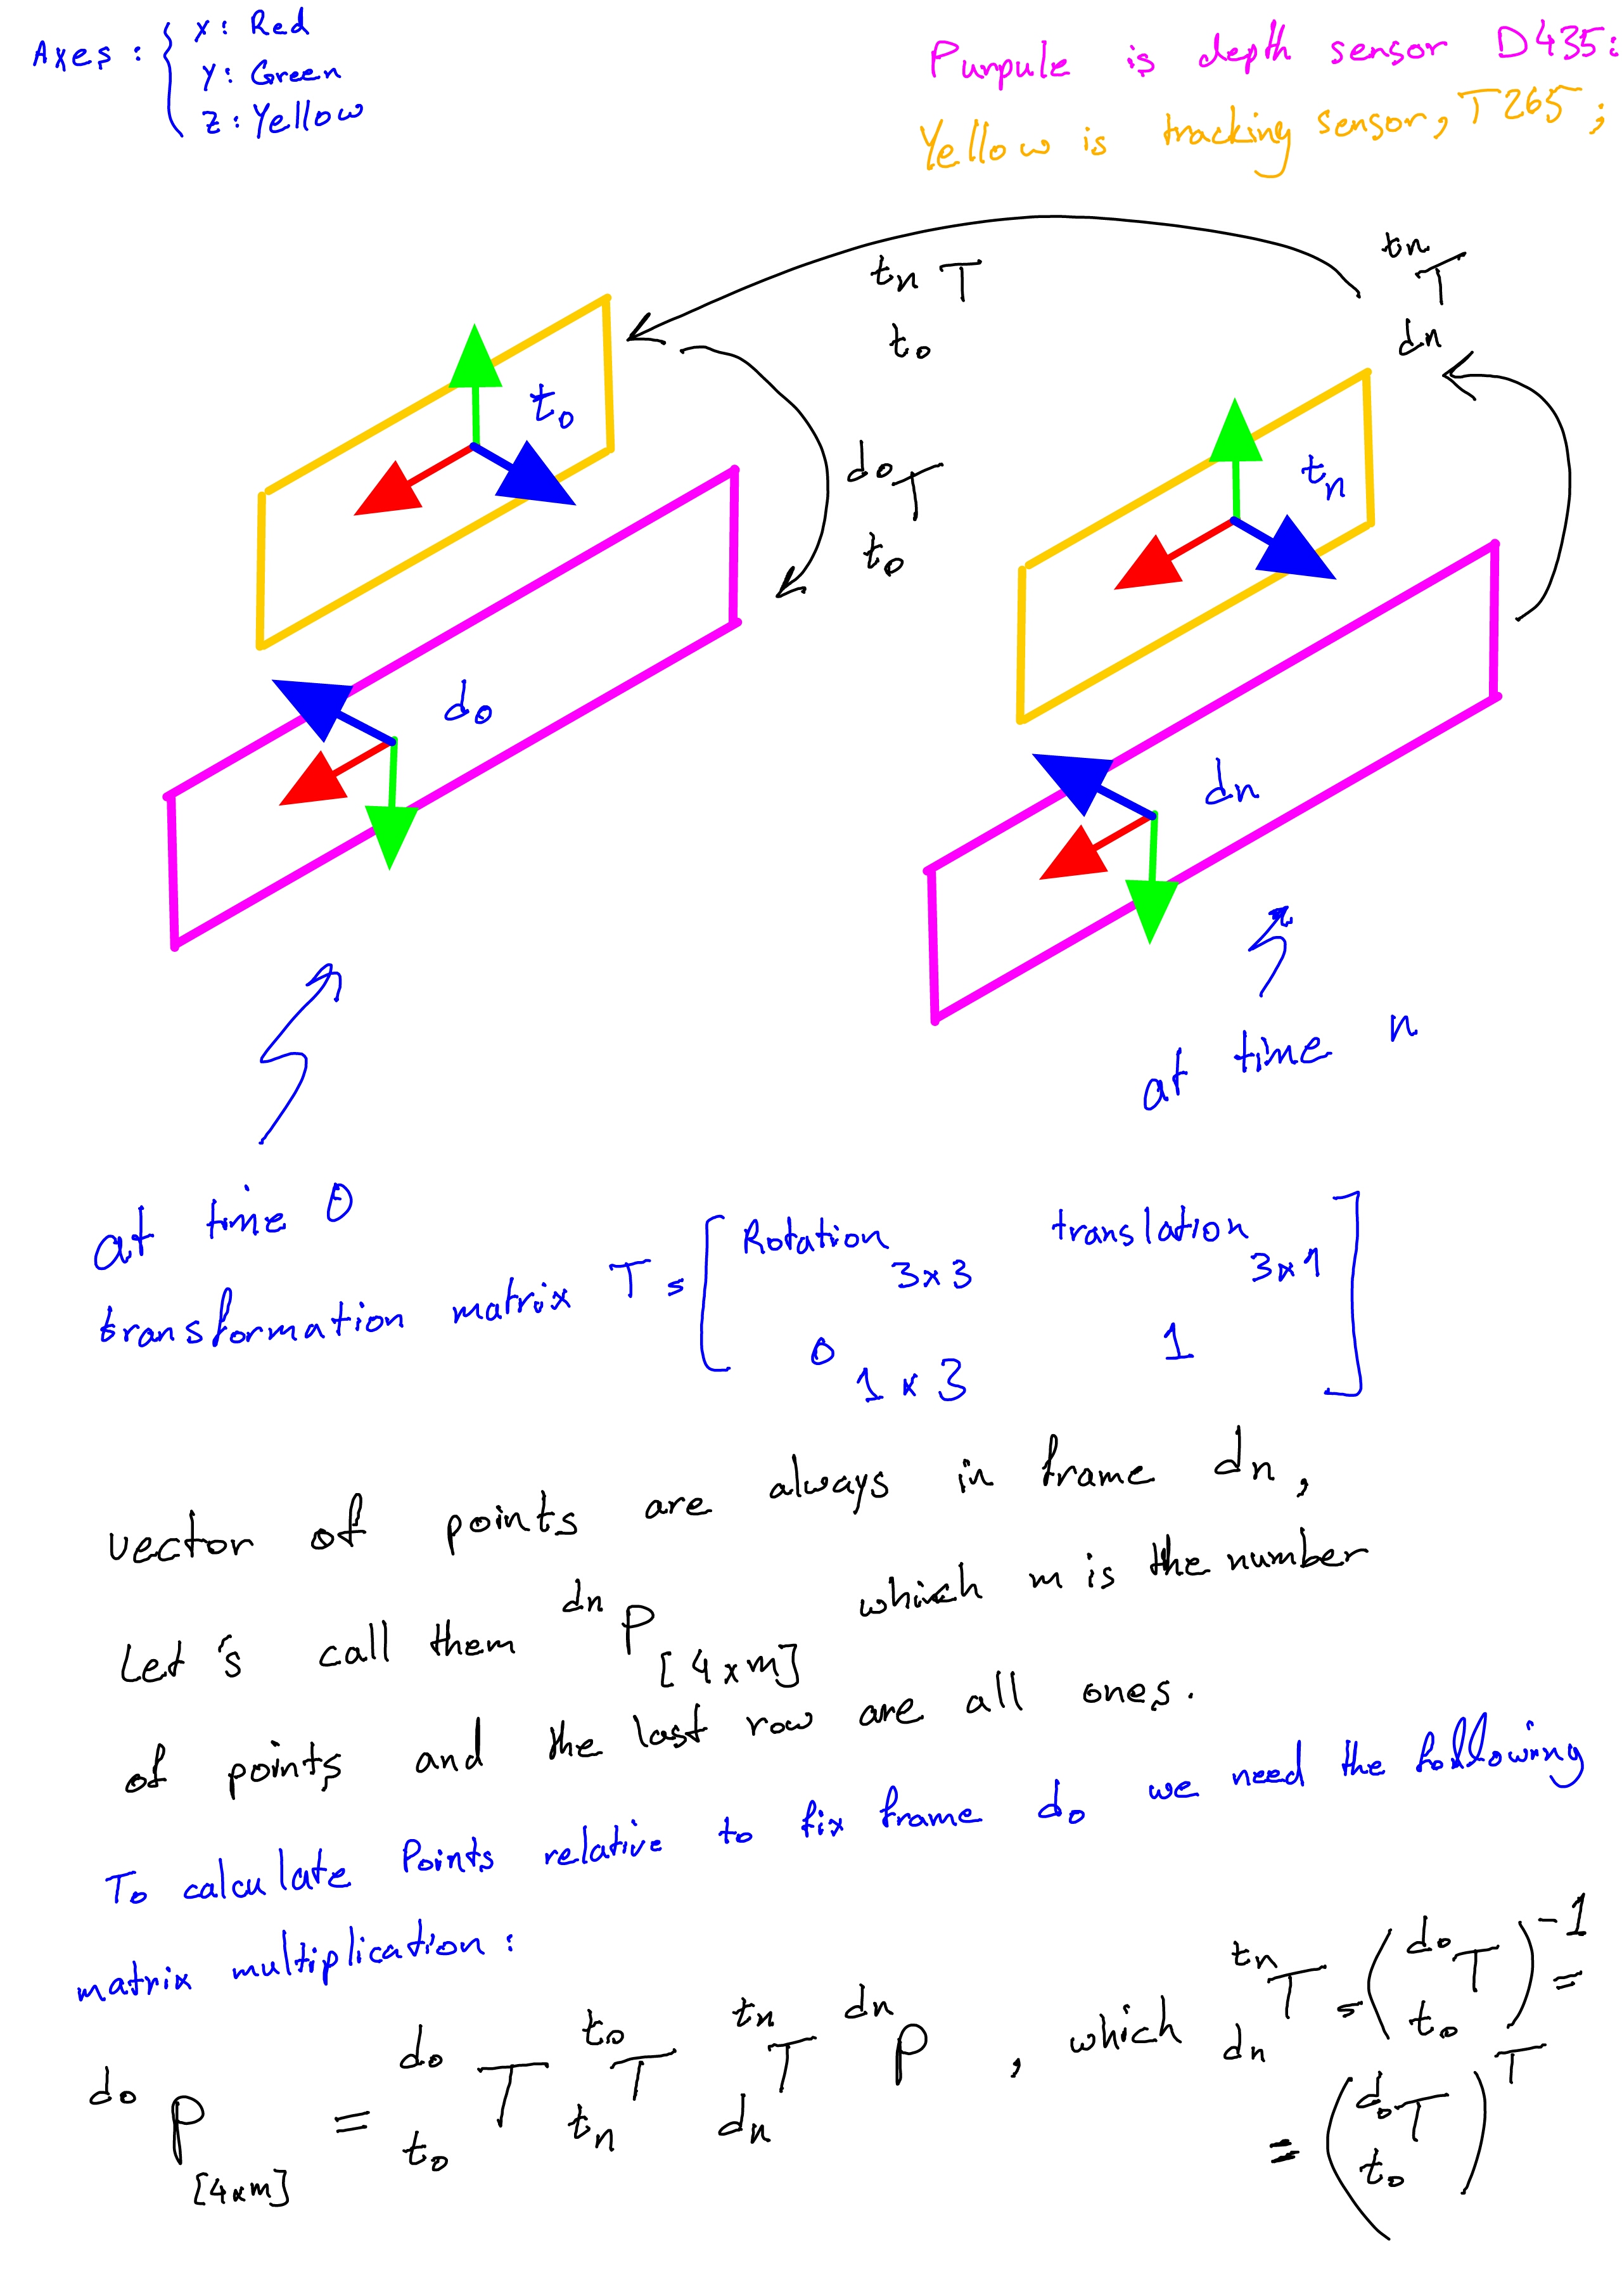 Axes : { x : Red
y : Green
z : Yellow
Purpule is depth sensor D435i
Yellow is tracking sensor, T265;
tn T t0
tn T dn
t0
d0 T t0
tn
d0
dn
at time n
at time 0
transformation matrix T = [ Rotation 3x3 translation 3x1
0 1x3 1 ]
vector of points are always in frame dn,
Let's call them dn P [4xm] which m is the number
of points and the last row are all ones.
To calculate Points relative to fix frame d0 we need the following
matrix multiplication :
d0 P [4xm] = d0 T t0 t0 T tn tn T dn dn P , which tn T dn = (d0 T t0)-1 =
= (d0 T t0) T